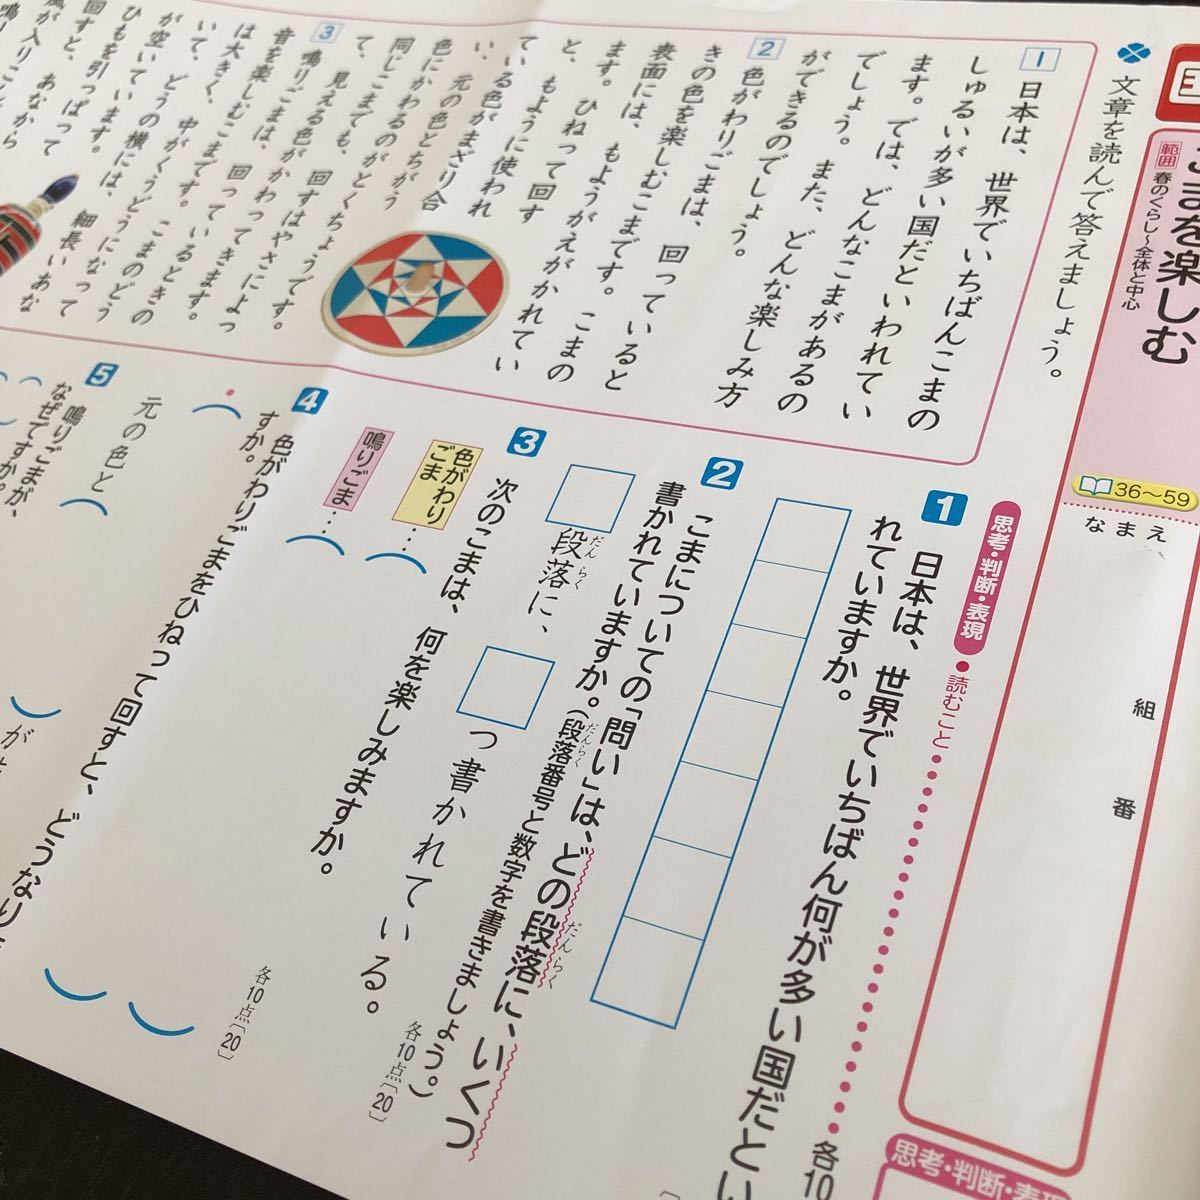 こまを楽しむ
範囲 春のくらし〜全体と中心
36〜59
なまえ
組
番
文章を読んで答えましょう。
1 日本は、世界でいちばんこまの
しゅるいが多い国だといわれてい
ます。では、どんなこまがあるの
でしょう。また、どんな楽しみ方
ができるのでしょう。
2 色がわりごまは、回っていると
きの色を楽しむこまです。こまの
表面には、もようがえがかれてい
ます。ひねって回す
と、もように使われ
ている色がまざり合
い、元の色とちがう
色にかわるのがとくちょうです。
同じこまでも、回すはやさによっ
て、見える色がかわってきます。
3 鳴りごまは、回っているときの
音を楽しむこまです。こまのどう
は大きく、中がくうどうになって
いて、どうの横には、細長いあな
が空いています。
ひもを引っぱって
回すと、あなから
風が入りこんで
思考・判断・表現
読むこと
1 日本は、世界でいちばん何が多い国だとい
れていますか。
各10
2 こまについての「問い」は、どの段落に、いくつ
書かれていますか。(段落番号と数字を書きましょう。)
各10点〔20〕
段落に、
つ書かれている。
3 次のこまは、何を楽しみますか。
各10点〔20〕
色がわりごま…
鳴りごま…
4 色がわりごまをひねって回すと、どうなり
すか。
元の色と
が
5 鳴りごまが、
なぜですか。
思考・判断・表現